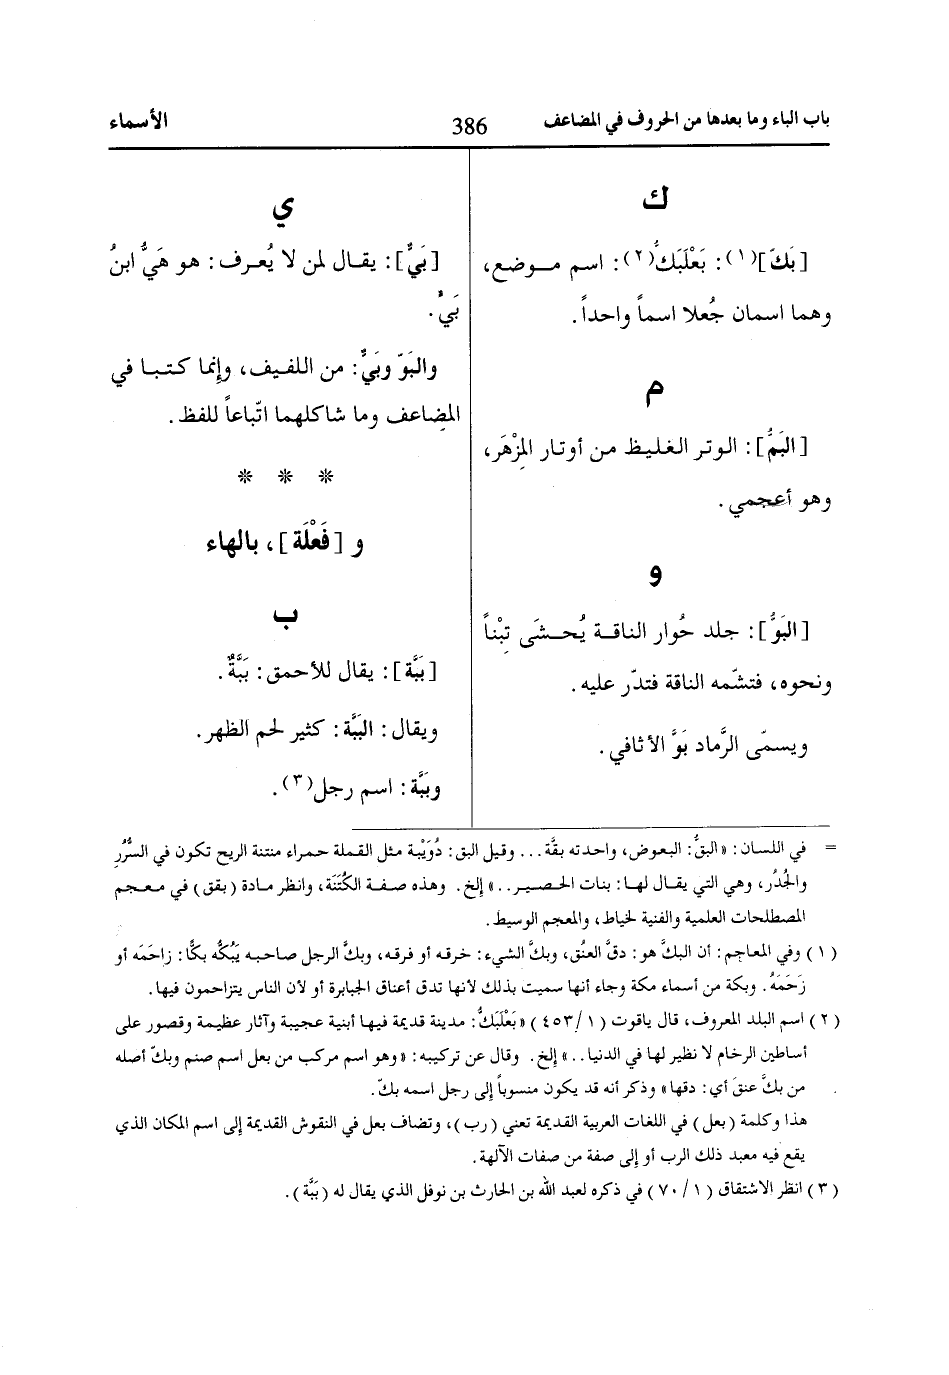 باب الباء وما بعدها من الحروف في المضاعف
386
الأسماء
ك
[بَكّ](١): بَعْلَبَكُّ(٢): اسم مـوضع،
وهما اسمان جُعلا اسماً واحداً.
م
[البَمُّ]: الوتر الغليظ من أوتار المِزْهَر،
وهو أعجمي.
و
[البَوُّ]: جلد حُوار الناقـة يُحـشَى تِبْناً
ونحوه، فتشّمه الناقة فتدّر عليه.
ويسمّى الرَّماد بَوَّ الأثافي.
ي
[بَيٌّ]: يقـال لمن لا يُعـرف: هو هَيُّ ابنُ
بَيٍّ.
والبَوّ وبَيٌّ: من اللفيف، وإنما كتبا في
المضاعف وما شاكلهما اتّباعاً للفظ.
* * *
و [فَعْلَة]، بالهاء
ب
[بَبَّة]: يقال للأحمق: بَبَّةٌ.
ويقال: البَبَّة: كثير لحم الظهر.
وبَبَّة: اسم رجل(٣).
= في اللسان: «البقُّ: البعوض، واحدته بقَّة... وقيل البق: دُوَيْبة مثل القملة حمراء منتنة الريح تكون في السُّرُرِ
والجُدُر، وهي التي يقال لها: بنات الحصير..» إلخ. وهذه صفة الكُتَنَة، وانظر مادة (بقق) في معجم
المصطلحات العلمية والفنية لخياط، والمعجم الوسيط.
(١) وفي المعاجم: أن البكَّ هو: دقَّ العنُق، وبكَّ الشيء: خرقه أو فرقه، وبكَّ الرجل صاحبه يَبُكُّه بكًّا: زاحَمَه أو
زَحَمَهُ. وبكة من أسماء مكة وجاء أنها سميت بذلك لأنها تدق أعناق الجبابرة أو لأن الناس يتزاحمون فيها.
(٢) اسم البلد المعروف، قال ياقوت (١/٤٥٣) «بَعْلَبَكُّ: مدينة قديمة فيها أبنية عجيبة وآثار عظيمة وقصور على
أساطين الرخام لا نظير لها في الدنيا..» إلخ. وقال عن تركيبه: «وهو اسم مركب من بعل اسم صنم وبكّ أصله
من بكَّ عنقَ أي: دقها» وذكر أنه قد يكون منسوباً إلى رجل اسمه بكّ.
هذا وكلمة (بعل) في اللغات العربية القديمة تعني (رب)، وتضاف بعل في النقوش القديمة إلى اسم المكان الذي
يقع فيه معبد ذلك الرب أو إلى صفة من صفات الآلهة.
(٣) انظر الاشتقاق (١/٧٠) في ذكره لعبد الله بن الحارث بن نوفل الذي يقال له (بَبَّة).